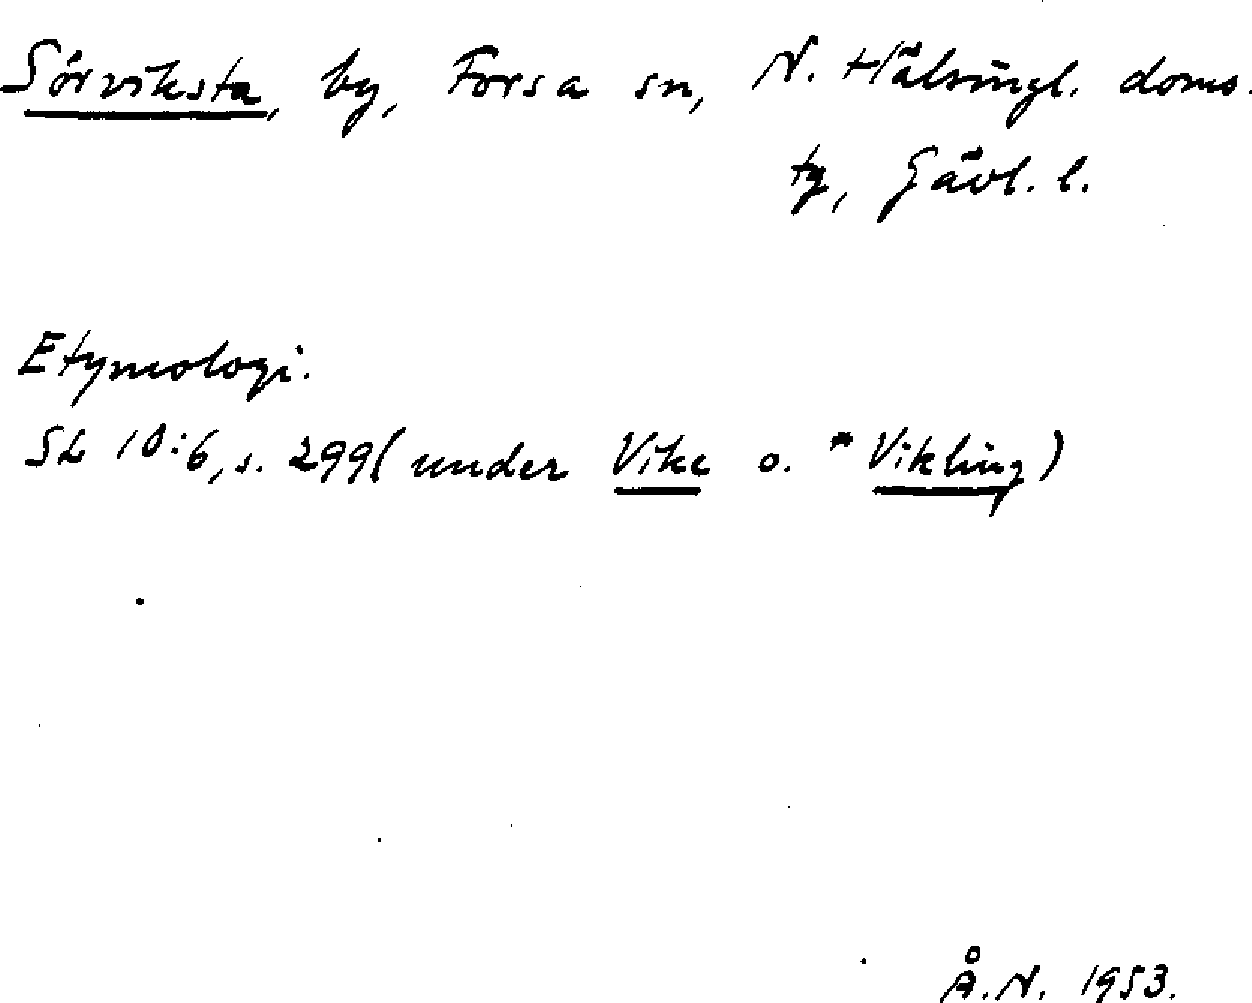 Sörviksta, by, Forsa sn, N. Hälsingl. doms.
tg, Gävl. l.
Etymologi.
SL 10:6, s. 299 (under Vike o. *Vikling)
Å.N. 1953.